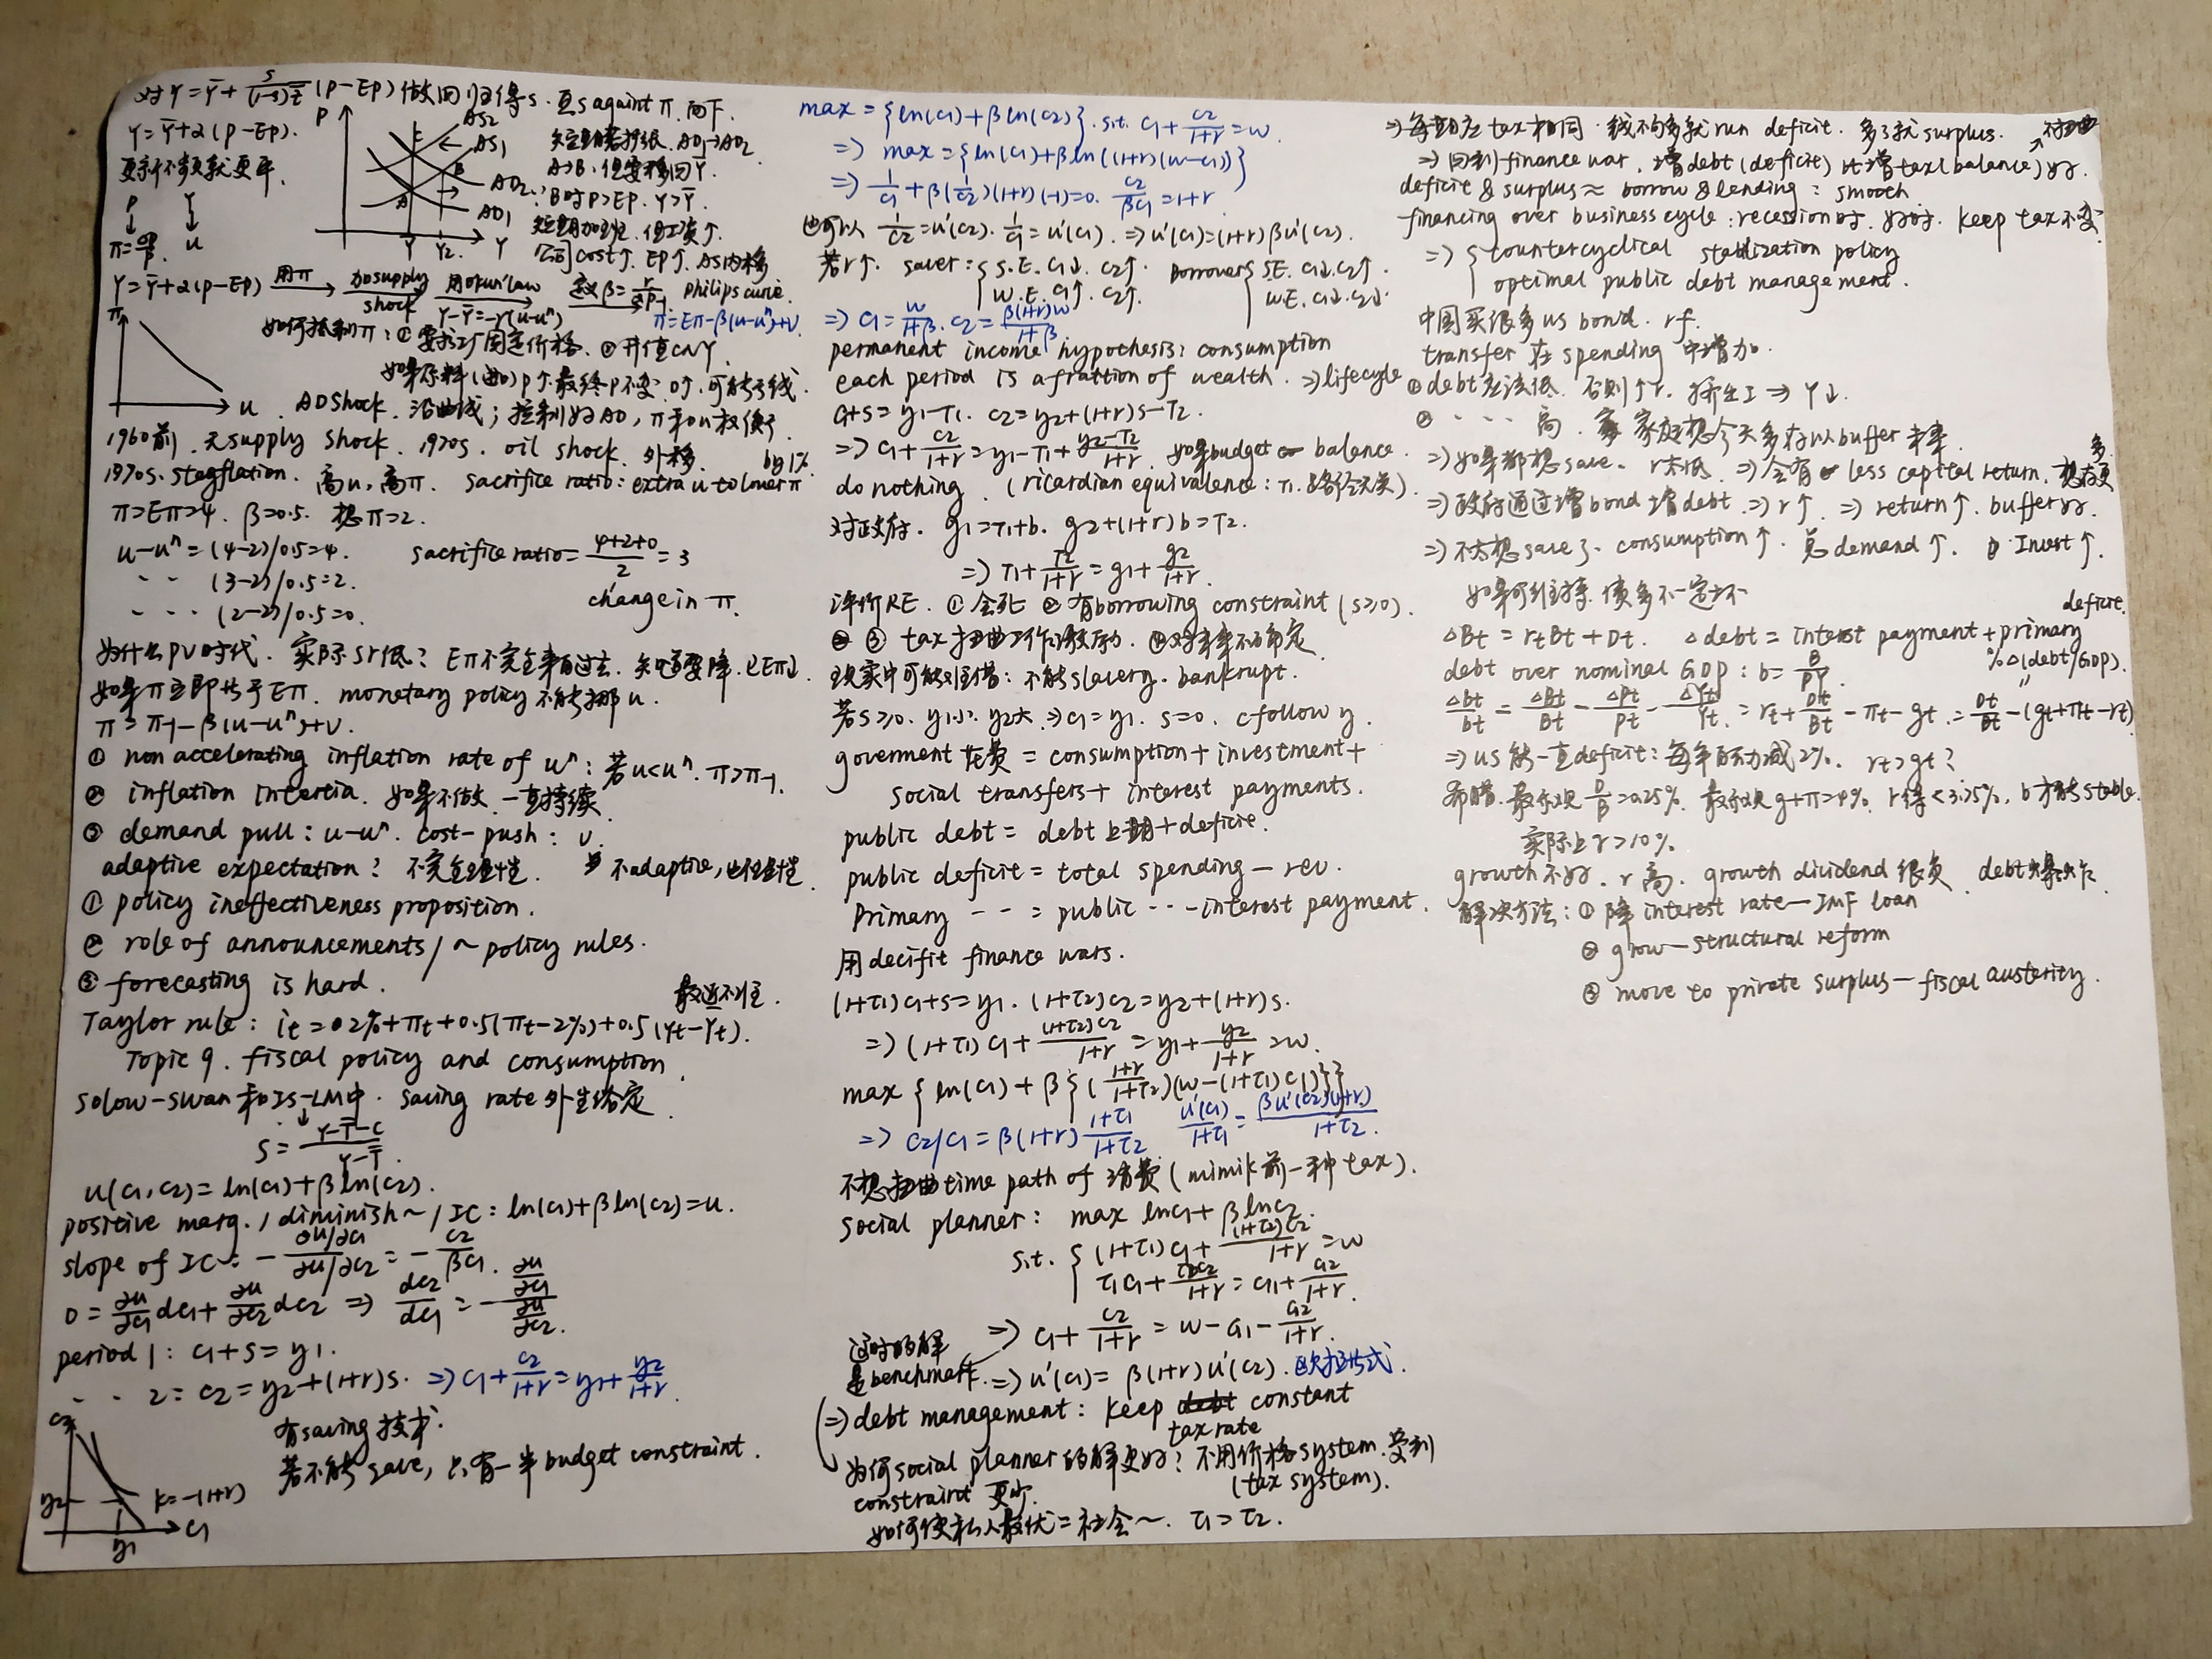 对Y=Ȳ+s/((1-s)z̄)(P-EP)做回归得s.
Y=Ȳ+α(P-EP).
P
AS2
AS1
AD2
AD1
A
B
Ȳ Y2 Y
AD1→AD2
A→B,但要移回Ȳ.
B时P>EP. Y>Ȳ.
公司cost↑. EP↑. AS内移
P Y
↓ ↓
u
Y=Ȳ+α(P-EP) 用π → 加supply shock → 用okun'law Y-Ȳ=-r(u-uⁿ) → philips curve.
π=Eπ-β(u-uⁿ)+ν
如何控制π:① 要求工厂固定价格. ② 升值CNY.
π
u. AD shock. 沿曲线; 控制好AD, π和u权衡
1960前. 无supply shock. 1970s. oil shock. 外移.
1970s. stagflation. 高u, 高π. sacrifice ratio: extra u to lower π by 1%
π=Eπ=4. β=0.5. 想π=2.
u-uⁿ=(4-2)/0.5=4. sacrifice ratio=(4+2+0)/2=3
·· (3-2)/0.5=2.
··· (2-2)/0.5=0. change in π.
为什么PV时代. 实际SR低? Eπ不完全来自过去.
如果π立即等于Eπ. monetary policy 不能挪u.
π=π-1-β(u-uⁿ)+ν.
① non accelerating inflation rate of uⁿ: 若u<uⁿ. π>π-1.
② inflation intertia. 如果不做. 一直持续
③ demand pull: u-uⁿ. cost-push: ν
adaptive expectation? 不完全理性. 不adaptive,也但理性.
① policy ineffectiveness proposition.
② role of announcements/~policy rules.
③ forecasting is hard.
Taylor rule: it=2%+πt+0.5(πt-2%)+0.5(Yt-Ȳt).
Topic 9. fiscal policy and consumption.
Solow-Swan和IS-LM中. saving rate外生给定.
s=(Y-T̄-C)/(Y-T̄)
u(c1,c2)=ln(c1)+βln(c2).
positive marg. / diminish~/ IC: ln(c1)+βln(c2)=u.
slope of IC: -(∂u/∂c1)/(∂u/∂c2)=-c2/(βc1).
0=∂u/∂c1 dc1+∂u/∂c2 dc2 ⇒ dc2/dc1=-(∂u/∂c1)/(∂u/∂c2).
period 1: c1+s=y1.
·· 2: c2=y2+(1+r)s. ⇒c1+c2/(1+r)=y1+y2/(1+r)
有saving技术.
若不能save, 只有一半budget constraint.
c2
y2
k=-(1+r)
c1
y1
max={ln(c1)+βln(c2)}. s.t. c1+c2/(1+r)=w.
⇒ max={ln(c1)+βln((1+r)(w-c1))}
⇒ 1/c1+β(1/c2)(1+r)(-1)=0. c2/(βc1)=1+r
也可以 1/c2=u'(c2). 1/c1=u'(c1). ⇒u'(c1)=(1+r)βu'(c2).
若r↑. saver:{S.E. c1↓. c2↑. borrower{SE. c1↓.c2↑.
W.E. c1↑. c2↑. W.E. c1↓.c2↓.
⇒ c1=w/(1+β). c2=β(1+r)w/(1+β)
permanent income hypothesis: consumption
each period is a fraction of wealth. ⇒lifecycle
c1+s=y1-T1. c2=y2+(1+r)s-T2.
⇒c1+c2/(1+r)=y1-T1+(y2-T2)/(1+r). 如果budget balance.
do nothing. (ricardian equivalence: T1. 路径无关).
对政府. g1=T1+b. g2+(1+r)b=T2.
⇒ T1+T2/(1+r)=g1+g2/(1+r).
评价RE. ① 会死 ② 有borrowing constraint (s≥0).
③ tax扭曲工作激励. ④对未来不确定
现实中可能难借: 不能slavery. bankrupt.
若s≥0. y1小. y2大. ⇒c1=y1. s=0. c follow y.
goverment花费=consumption+investment+
social transfers+interest payments.
public debt=debt上期+deficit.
public deficit=total spending-rev.
Primary ·· = public ·· - interest payment.
用decifit finance wars.
(1+τ1)c1+s=y1. (1+τ2)c2=y2+(1+r)s.
⇒ (1+τ1)c1+(1+τ2)c2/(1+r)=y1+y2/(1+r)=w.
max{ln(c1)+β{((1+r)/(1+τ2))(w-(1+τ1)c1)}}
⇒ c2/c1=β(1+r)(1+τ1)/(1+τ2) u'(c1)/(1+τ1)=βu'(c2)(1+r)/(1+τ2).
不想扭曲time path of 消费(mimik前一种tax).
social planner: max lnc1+βlnc2.
s.t. {(1+τ1)c1+(1+τ2)c2/(1+r)=w
τ1c1+τ2c2/(1+r)=G1+G2/(1+r).
⇒ c1+c2/(1+r)=w-G1-G2/(1+r).
这时的解是benchmark. ⇒u'(c1)=β(1+r)u'(c2). 欧拉式.
(⇒debt management: keep debt constant
tax rate
为何social planner的解更好? 不用价格system. 受到
constraint 更少. (tax system).
如何使私人最优=社会~. τ1=τ2.
⇒每期应tax相同. 钱不够多就run deficit. 多了就surplus.
⇒ 回到finance war. 增debt(deficit)比增tax(balance)好. 不扭曲
deficit & surplus≈borrow & lending: smooth
financing over business cycle: recession时. 好时. keep tax不变
⇒{countercyclical stablization policy
optimal public debt management.
中国买很多us bond. rf.
transfer在spending中增加.
① debt应该低. 否则↑r. 挤出I ⇒ Y↓.
② ··· 高. 家庭想今天多存以buffer未来.
⇒如果都想save. r太低. ⇒会有less capital return.
⇒政府通过增bond增debt. ⇒r↑. ⇒return↑. buffer好.
⇒不太想save了. consumption↑. 总demand↑. Invest↑.
如果可维持. 债多不一定坏
ΔBt=rtBt+Dt. Δdebt=interst payment+primary deficit.
debt over nominal GDP: b=B/PY. %Δ(debt/GDP).
Δbt/bt=ΔBt/Bt-ΔPt/Pt-ΔYt/Yt.=rt+Dt/Bt-πt-gt.=Dt/Bt-(gt+πt-rt)
⇒us能一直deficit: 每年压力减2%. rt>gt?
希腊. 最乐观D/B=0.25%. 最乐观g+π=4%. r得<3.75%, b才能stable.
实际上r>10%.
growth不好. r高. growth dividend很负. debt爆炸.
解决方法: ① 降interest rate—IMF loan
② grow—structural reform
③ move to private surplus—fiscal austerity.